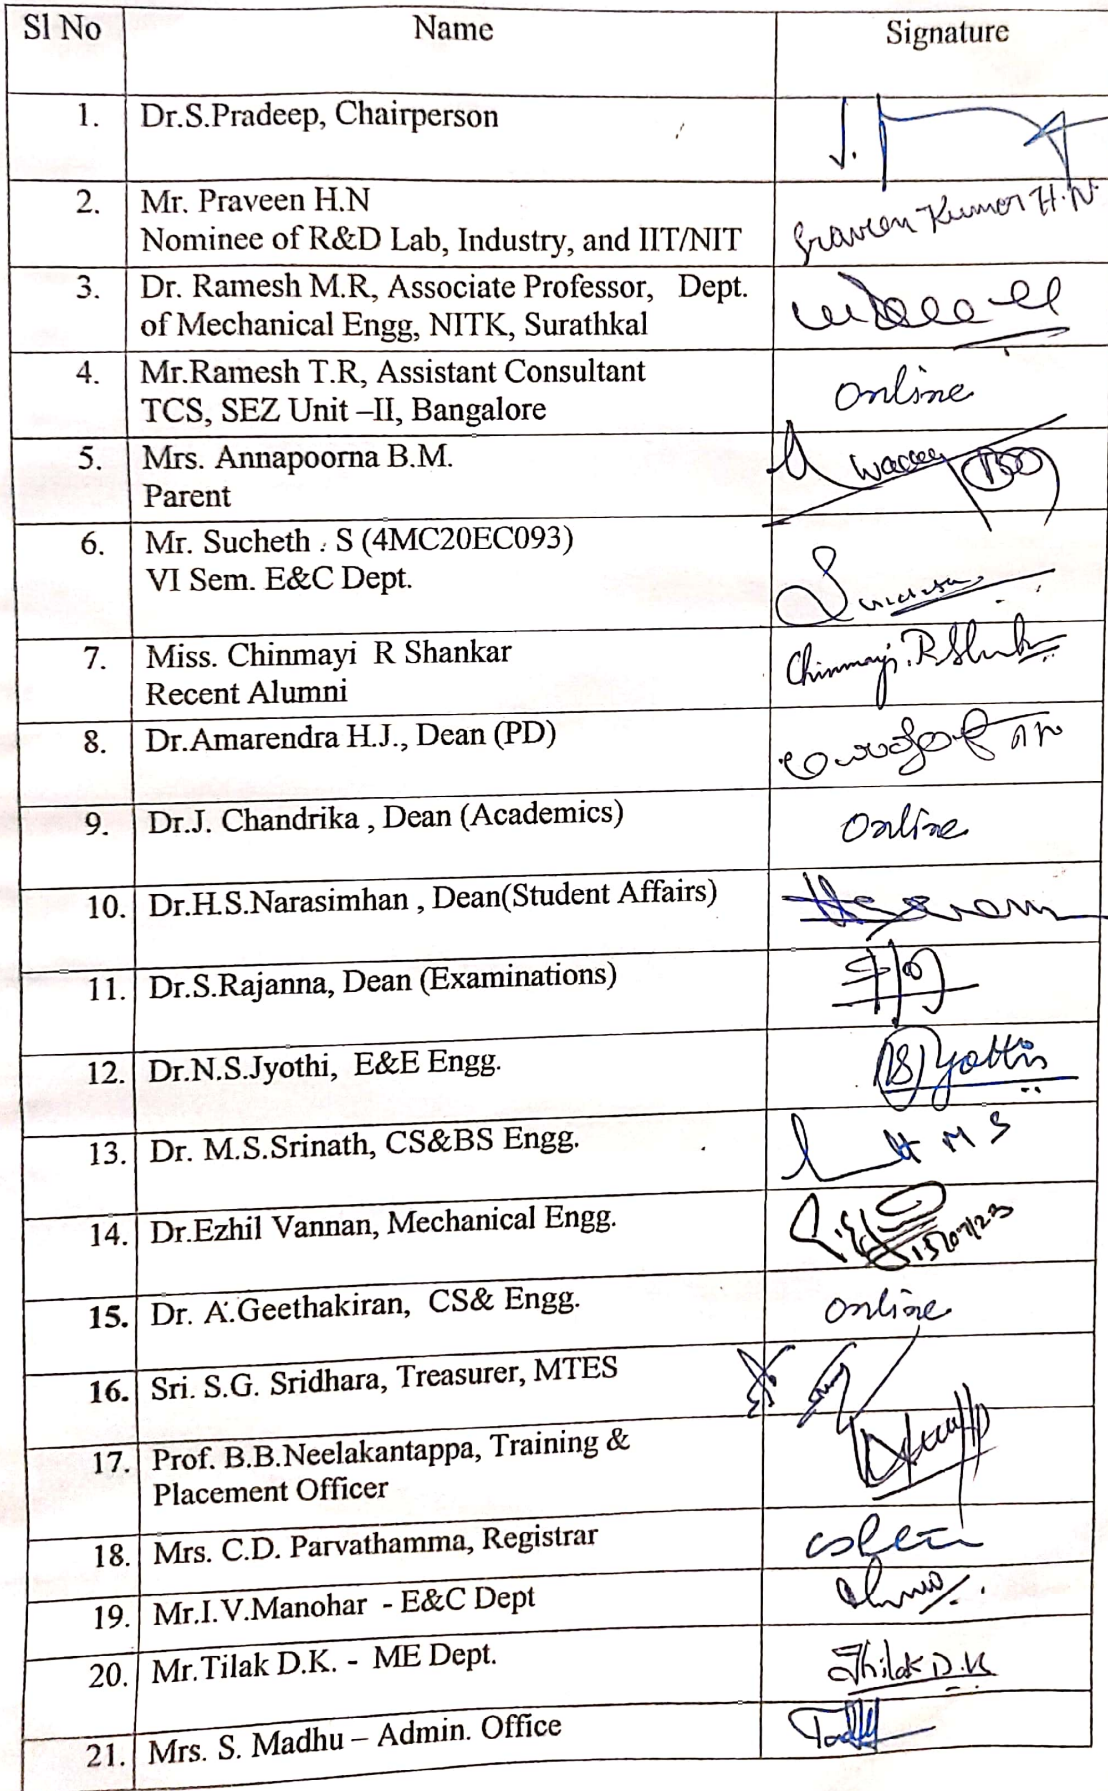 Sl No Name Signature
1. Dr.S.Pradeep, Chairperson
2. Mr. Praveen H.N Praveen Kumar H.N.
Nominee of R&D Lab, Industry, and IIT/NIT
3. Dr. Ramesh M.R, Associate Professor, Dept.
of Mechanical Engg, NITK, Surathkal
4. Mr.Ramesh T.R, Assistant Consultant Online
TCS, SEZ Unit –II, Bangalore
5. Mrs. Annapoorna B.M.
Parent
6. Mr. Sucheth . S (4MC20EC093)
VI Sem. E&C Dept.
7. Miss. Chinmayi R Shankar Chinmayi.R
Recent Alumni
8. Dr.Amarendra H.J., Dean (PD)
9. Dr.J. Chandrika , Dean (Academics) Online
10. Dr.H.S.Narasimhan , Dean(Student Affairs)
11. Dr.S.Rajanna, Dean (Examinations)
12. Dr.N.S.Jyothi, E&E Engg.
13. Dr. M.S.Srinath, CS&BS Engg. M S
14. Dr.Ezhil Vannan, Mechanical Engg. 15/07/23
15. Dr. A.Geethakiran, CS& Engg. Online
16. Sri. S.G. Sridhara, Treasurer, MTES
17. Prof. B.B.Neelakantappa, Training &
Placement Officer
18. Mrs. C.D. Parvathamma, Registrar
19. Mr.I.V.Manohar - E&C Dept
20. Mr.Tilak D.K. - ME Dept. Thilak D.K
21. Mrs. S. Madhu – Admin. Office